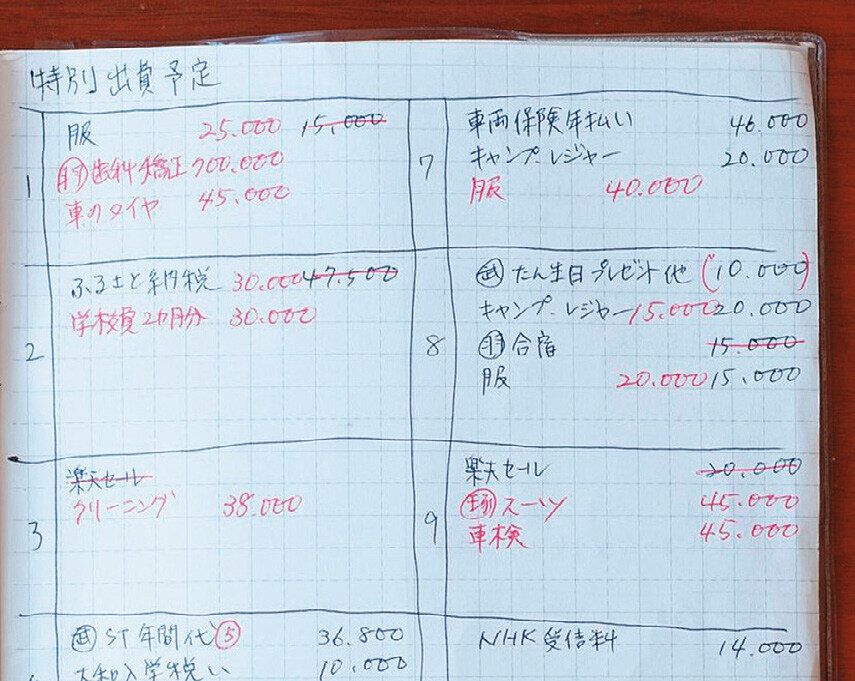 特別出費予定
1
服 25.000 15,000
歯科矯正 700.000
車のタイヤ 45.000
2
ふるさと納税 30.000 47.500
学校費2ヵ月分 30.000
3
楽天セール
クリーニング 38.000
武 ST年間代⑤ 36.800
入学祝い 10.000
7
車両保険年払い 46.000
キャンプ.レジャー 20.000
服 40.000
8
武 たん生日プレゼント他 (10.000)
キャンプ.レジャー 15.000 20.000
合宿 15.000
服 20.000 15,000
9
楽天セール 20.000
スーツ 45.000
車検 45.000
NHK受信料 14.000